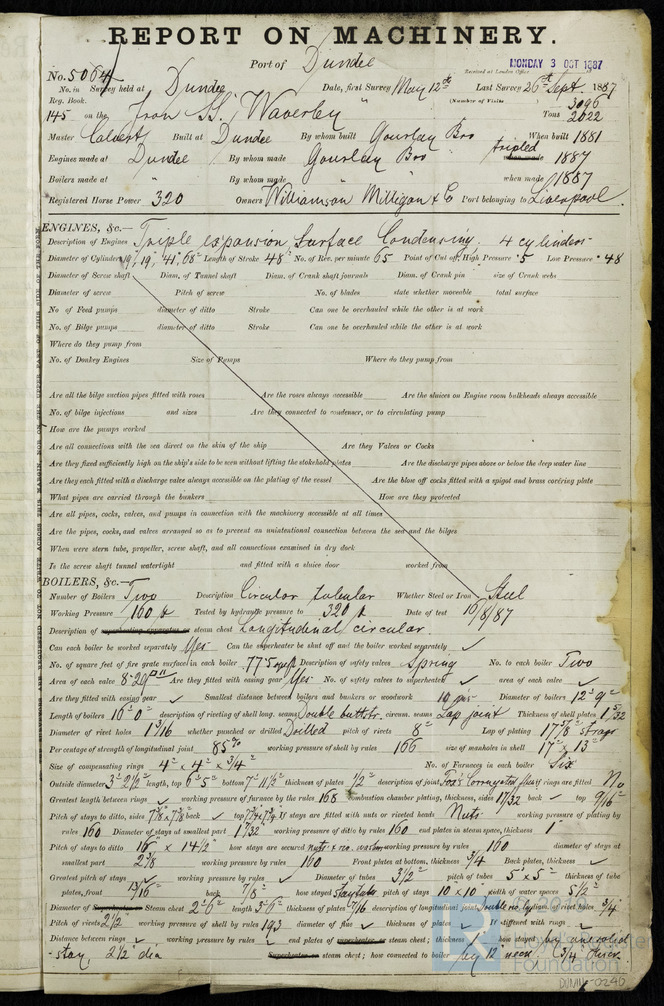 REPORT ON MACHINERY.
Port of Dundee
MONDAY 3 OCT 1887
Received at London Office
No. 5064
No. in Reg. Book. Survey held at Dundee Date, first Survey May 12th Last Survey 26th Sept. 1887
(Number of Visits
145 on the Iron SS. "Waverley" Tons 3096 2022
Master Calvert Built at Dundee By whom built Gourlay Bro When built 1881
Engines made at Dundee By whom made Gourlay Bro tripled when made 1887
Boilers made at " By whom made " when made 1887
Registered Horse Power 320 Owners Williamson Milligan & Co Port belonging to Liverpool.
ENGINES, &c.—
Description of Engines Triple expansion, Surface Condensing. 4 cylinders
Diameter of Cylinders 19, 19, 41, 68 Length of Stroke 48 No. of Rev. per minute 65 Point of Cut off, High Pressure ·5 Low Pressure ·48
Diameter of Screw shaft Diam. of Tunnel shaft Diam. of Crank shaft journals Diam. of Crank pin size of Crank webs
Diameter of screw Pitch of screw No. of blades state whether moveable total surface
No of Feed pumps diameter of ditto Stroke Can one be overhauled while the other is at work
No. of Bilge pumps diameter of ditto Stroke Can one be overhauled while the other is at work
Where do they pump from
No. of Donkey Engines Size of Pumps Where do they pump from
Are all the bilge suction pipes fitted with roses Are the roses always accessible Are the sluices on Engine room bulkheads always accessible
No. of bilge injections and sizes Are they connected to condenser, or to circulating pump
How are the pumps worked
Are all connections with the sea direct on the skin of the ship Are they Valves or Cocks
Are they fixed sufficiently high on the ship's side to be seen without lifting the stokehold plates Are the discharge pipes above or below the deep water line
Are they each fitted with a discharge valve always accessible on the plating of the vessel Are the blow off cocks fitted with a spigot and brass covering plate
What pipes are carried through the bunkers How are they protected
Are all pipes, cocks, valves, and pumps in connection with the machinery accessible at all times
Are the pipes, cocks, and valves arranged so as to prevent an unintentional connection between the sea and the bilges
When were stern tube, propeller, screw shaft, and all connections examined in dry dock
Is the screw shaft tunnel watertight and fitted with a sluice door worked from
BOILERS, &c.—
Number of Boilers Two Description Circular tubular Whether Steel or Iron Steel
Working Pressure 160 lb Tested by hydraulic pressure to 320 lb Date of test 16/8/87
Description of superheating apparatus or steam chest Longitudinal circular.
Can each boiler be worked separately Yes Can the superheater be shut off and the boiler worked separately ✓
No. of square feet of fire grate surface in each boiler 77.5 sq ft Description of safety valves Spring No. to each boiler Two
Area of each valve 8.29 Are they fitted with easing gear Yes No. of safety valves to superheater ✓ area of each valve ✓
Are they fitted with easing gear ✓ Smallest distance between boilers and bunkers or woodwork 10 ins Diameter of boilers 12' 9"
Length of boilers 16' 0" description of riveting of shell long. seams Double butt str. circum. seams Lap joint Thickness of shell plates 1 5/32
Diameter of rivet holes 1 3/16 whether punched or drilled Drilled pitch of rivets 8" Lap of plating 17 7/8 straps
Percentage of strength of longitudinal joint 85% working pressure of shell by rules 166 size of manholes in shell 17" x 13"
Size of compensating rings 4" x 4" x 3/4" No. of Furnaces in each boiler Six
Outside diameter 3' 2 1/2" length, top 6' 5" bottom 7' 11 1/2" thickness of plates 1/2" description of joint Fox's Corrugated if rings are fitted No
Greatest length between rings ✓ working pressure of furnace by the rules 168 combustion chamber plating, thickness, sides 17/32 back ✓ top 9/16
Pitch of stays to ditto, sides 7 7/8 x 7 7/8 back ✓ top If stays are fitted with nuts or riveted heads Nuts working pressure of plating by
rules 160 Diameter of stays at smallest part 1 17/32 working pressure of ditto by rules 160 end plates in steam space, thickness 1"
Pitch of stays to ditto 16" x 14 1/2" how stays are secured nuts & working pressure by rules 160 diameter of stays at
smallest part 2 3/8 working pressure by rules 160 Front plates at bottom, thickness 3/4 Back plates, thickness ✓
Greatest pitch of stays ✓ working pressure by rules ✓ Diameter of tubes 3 1/2" pitch of tubes 5" x 5" thickness of tube
plates, front 13/16" back 7/8" how stayed stay tubes pitch of stays 10" x 10" width of water spaces 5 1/2"
Diameter of Superheater or Steam chest 2' 6" length 3' 6" thickness of plates 7/16 description of longitudinal joint Double riv. lap diam. of rivet holes 3/4
Pitch of rivets 2 1/2 working pressure of shell by rules 193 diameter of flue ✓ thickness of plates ✓ If stiffened with rings ✓
Distance between rings ✓ working pressure by rules ✓ end plates of superheater or steam chest; thickness how stayed by one solid
stay, 2 1/2" dia Superheater or steam chest; how connected to boiler by 12" neck (3/4 thick
Lloyd's Register Foundation